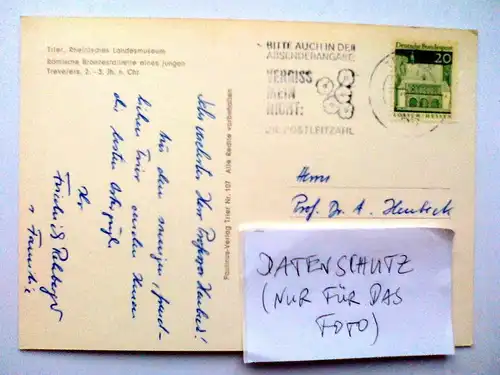 Trier, Rheinisches Landesmuseum
Römische Bronzestatuette eines jungen
Treverers, 2. - 3. Jh. n. Chr.
BITTE AUCH IN DER
ABSENDERANGABE:
VERGISS
MEIN
NICHT:
DIE POSTLEITZAHL
Deutsche Bundespost
20
LORSCH/HESSEN
Sehr verehrter Herr Professor
Aus dem sonnigen,
Trier senden Ihnen
die besten Ostergrüße
Ihr
Familie
Paulinus-Verlag Trier Nr. 107 Alle Rechte vorbehalten
Herrn
Prof. Dr. A. Heubeck
DATENSCHUTZ
(NUR FÜR DAS
FOTO)